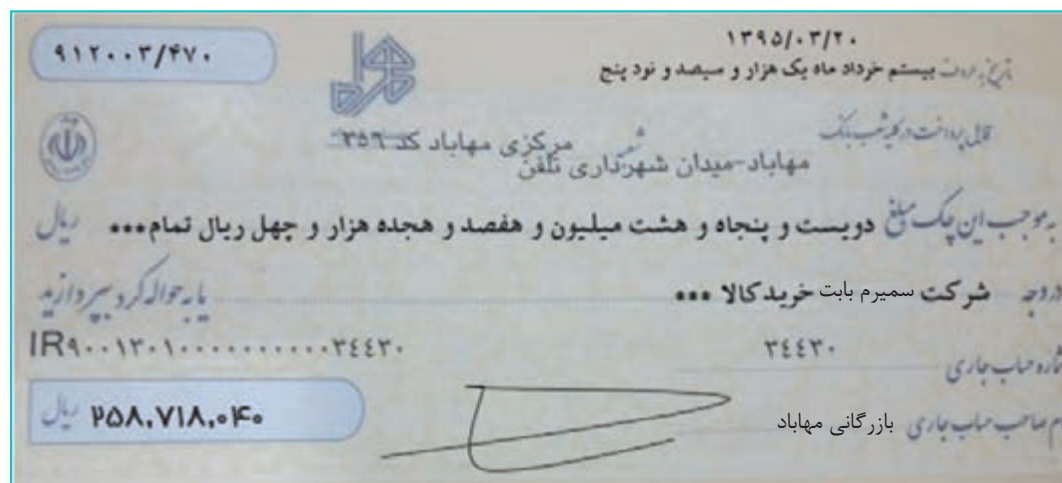 ۹۱۲۰۰۳/۴۷۰
۱۳۹۵/۰۳/۲۰
تاریخ به حروف بیستم خرداد ماه یک هزار و سیصد و نود پنج
قابل پرداخت در کلیه شعب بانک
شعبه مرکزی مهاباد کد ۳۵۹
مهاباد-میدان شهرداری تلفن
به موجب این چک مبلغ دویست و پنجاه و هشت میلیون و هفصد و هجده هزار و چهل ریال تمام*** ریال
در وجه شرکت سمیرم بابت خرید کالا *** یا به حواله کرد بپردازید
IR۹۰۰۱۳۰۱۰۰۰۰۰۰۰۰۰۰۰۳٤٤۳۰
۳٤٤۳۰
شماره حساب جاری
نام صاحب حساب جاری بازرگانی مهاباد
۲۵۸,۷۱۸,۰۴۰ ریال